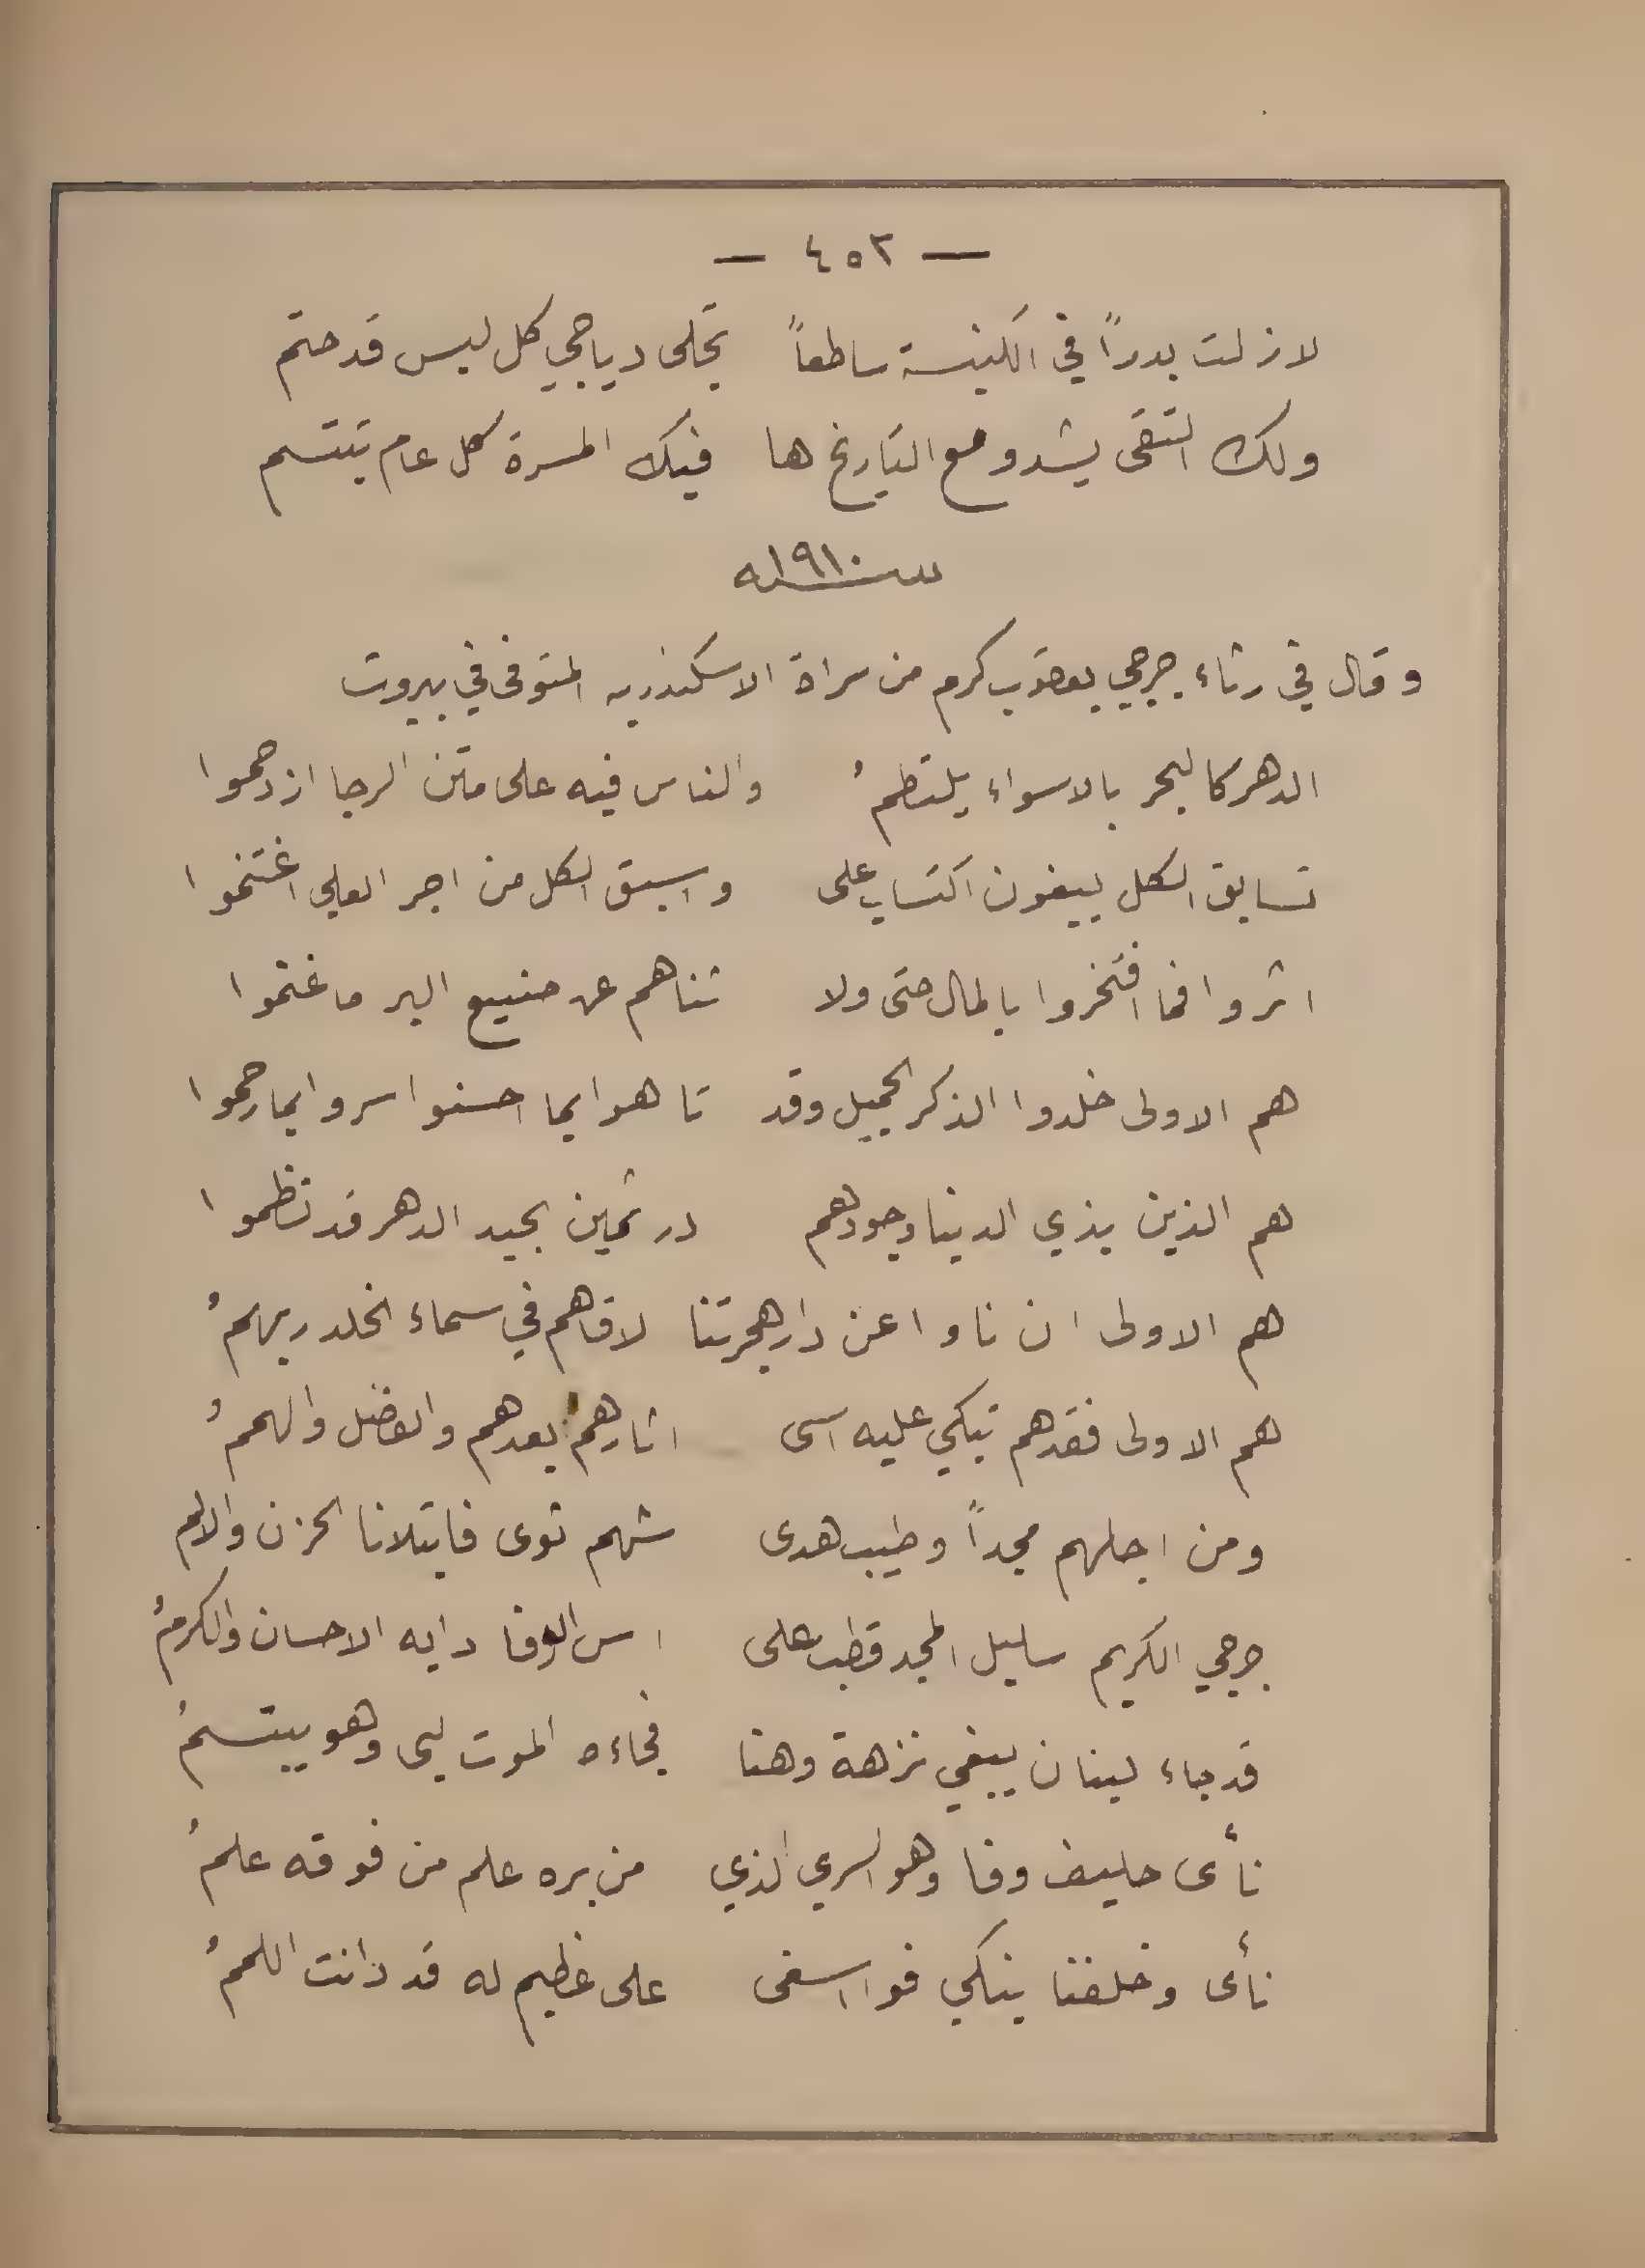 — ٤٥٢ —
لا زلت بدراً في الكنيسة ساطعاً تجلى دياجي كل ليس قد حتم
ولك التقى يشدو مع التاريخ ها فيك المسرة كل عام تبتسم
سنة ١٩١٠
وقال في رثاء جرجي يعقوب كرم من سراة الاسكندريه المتوفى في بيروت
الدهر كالبحر بالاسواء يلتطمُ والناس فيه على متن الرجا ازدحموا
تسابق الكل يبغون اكتساب على واسبق الكل من اجر العلى اغتنموا
اثروا فما افتخروا بالمال حتى ولا ثناهم عن صنيع البر ما غنموا
هم الاولى خلدوا الذكر الجميل وقد تاهوا بما احسنوا سروا بما رحموا
هم الذين بذي الدينا وجودهم در ثمين بجيد الدهر قد نظموا
هم الاولى ان ناوا عن دار هجرتنا لاقاهم في سماء الخلد ربهمُ
هم الاولى فقدهم تبكي عليه اسى اثارهم بعدهم والفضل والهممُ
ومن اجلهم مجداً وطيب هدى شهم ثوى فابتلانا الحزن والالم
جرجي الكريم سليل المجد قطب على اس الوفا دابه الاحسان والكرمُ
قد جاء لبنان يبغي نزهة وهنا فجاءه الموت لبى وهو يبتسمُ
نأى حليف وفا وهو السري الذي من بره علم من فوقه علمُ
نأى وخلفنا نبكي فوا اسفى على عظيم له قد دانت اللممُ